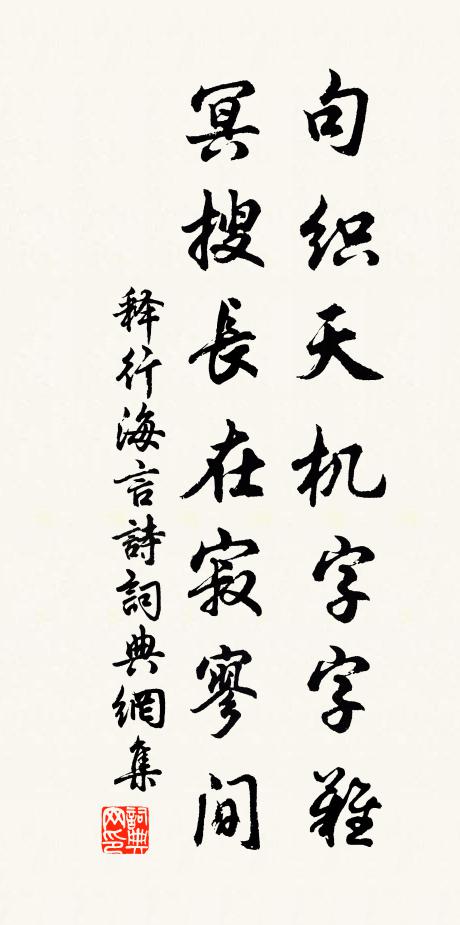 句织天机字字難
冥搜長在寂寥間
释行海言詩詞典網集
詞典网印